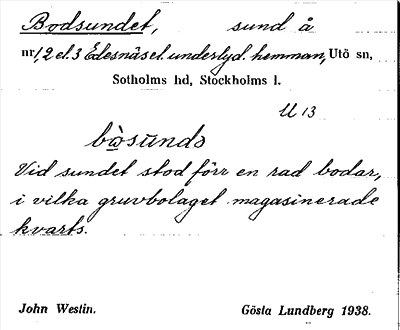 Bodsundet, sund å
nr 1, 2 el. 3 Edesnäs el. underlyd. hemman, Utö sn,
Sotholms hd, Stockholms l.
U 13
bòsūndə
Vid sundet stod förr en rad bodar,
i vilka gruvbolaget magasinerade
kvarts.
John Westin. Gösta Lundberg 1938.